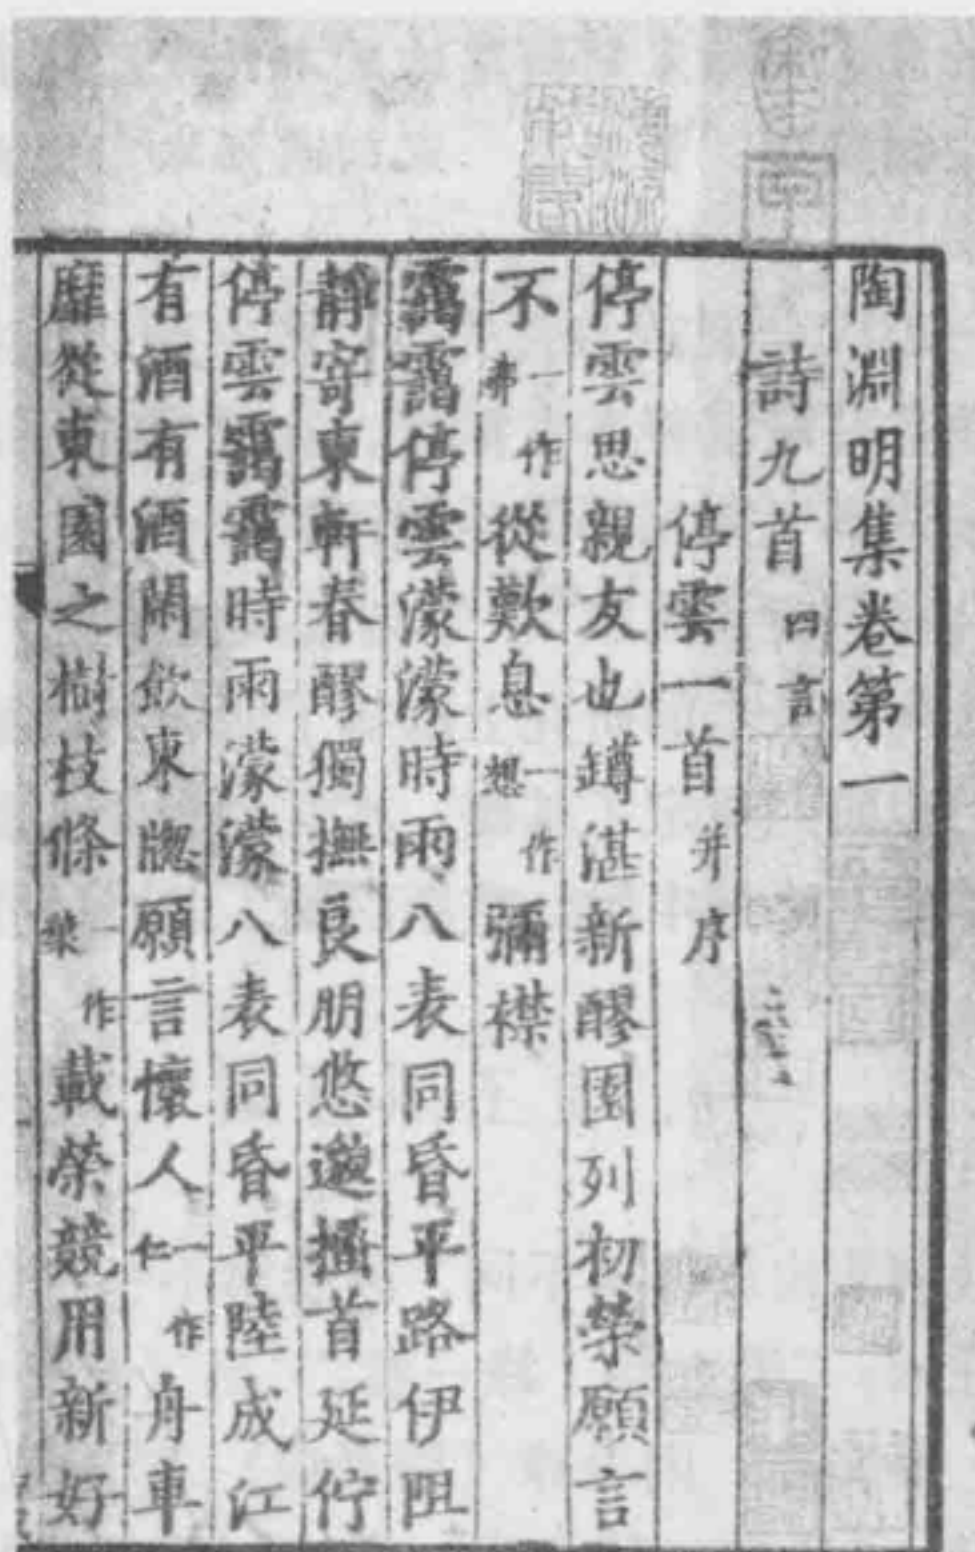 陶淵明集卷第一
詩九首四言
停雲一首并序
停雲思親友也罇湛新醪園列初榮願言
不一作弗從歎息一作想彌襟
靄靄停雲濛濛時雨八表同昏平路伊阻
靜寄東軒春醪獨撫良朋悠邈搔首延佇
停雲靄靄時雨濛濛八表同昏平陸成江
有酒有酒閑飲東牕願言懷人一作仁舟車
靡從東園之樹枝條一作葉載榮競用新好